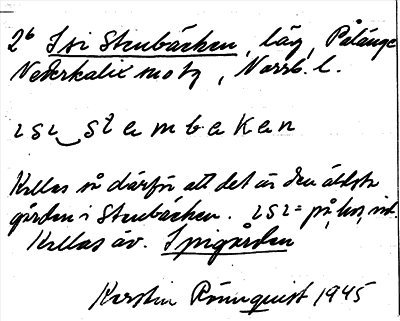 2b Isi Stenbäcken, läg, Pålänge
Nederkalix motg, Norrb. l.
ɩsɩ‿stembekan
Kallas så därför att det är den äldsta
gården i Stenbäcken. ɩsɩ = på, hos, ind.
Kallas äv. Ipigården
Kerstin Rönnquist 1945